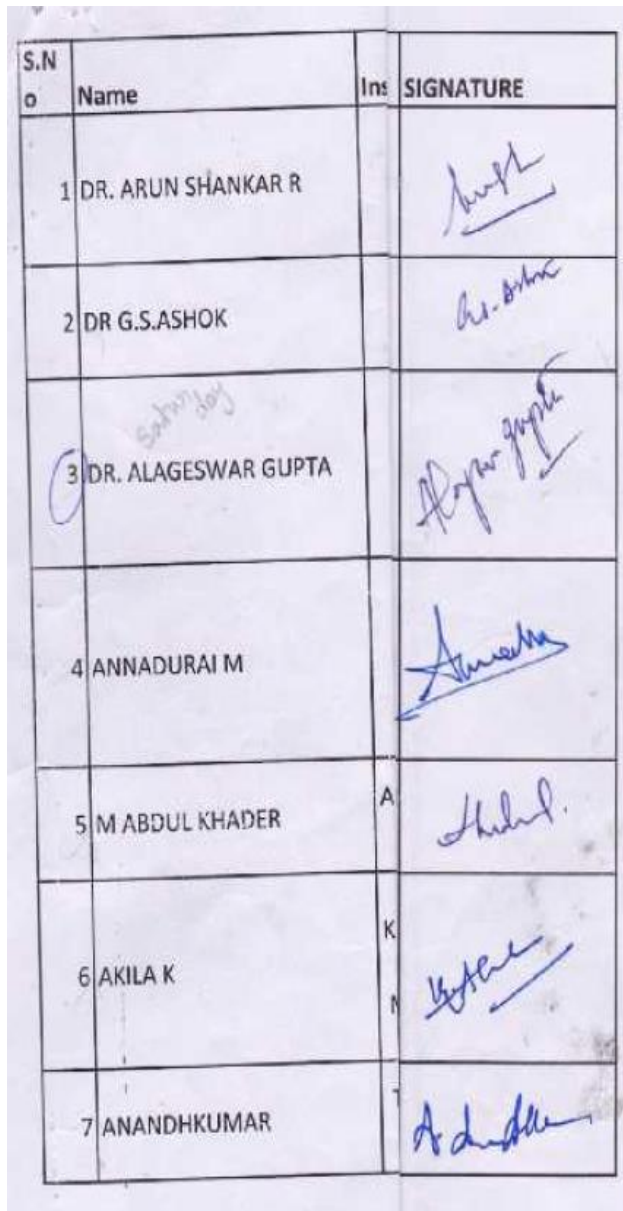 S.N
o Name Ins SIGNATURE
1 DR. ARUN SHANKAR R
2 DR G.S.ASHOK
Saturday
3 DR. ALAGESWAR GUPTA gupta
4 ANNADURAI M
5 M ABDUL KHADER A
K
6 AKILA K
N
7 ANANDHKUMAR T